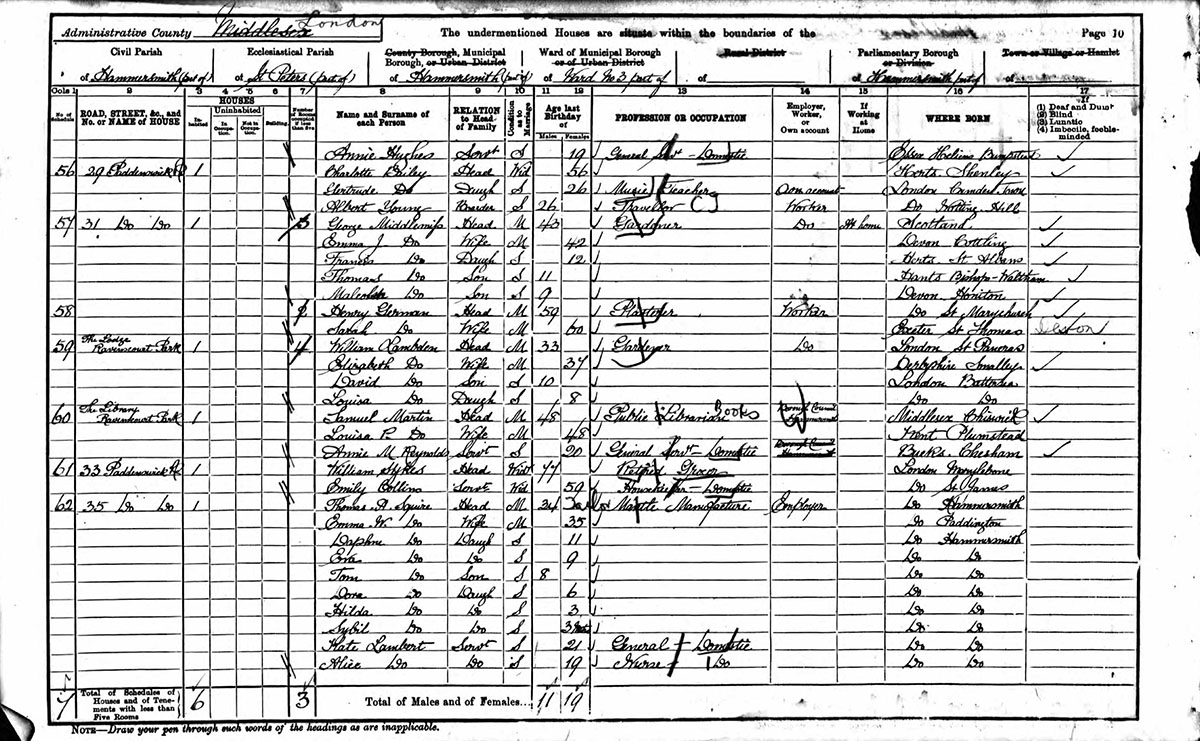 Administrative County Middlesex London The undermentioned Houses are situate within the boundaries of the Page 10
Civil Parish Ecclesiastical Parish County Borough, Municipal Borough, or Urban District Ward of Municipal Borough or of Urban District Rural District Parliamentary Borough or Division Town or Village or Hamlet
of Hammersmith (part of) of St Peters (part of) of Hammersmith (part of) of Ward No 3 part of of of Hammersmith part of of
Cols 1 2 3 4 5 6 7 8 9 10 11 12 13 14 15 16 17
No of Schedule ROAD, STREET, &c., and No. or NAME of HOUSE HOUSES Inhabited Uninhabited In Occupation Not in Occupation Building Number of Rooms occupied if less than five Name and Surname of each Person RELATION to Head of Family Condition as to Marriage Age last Birthday of Males Females PROFESSION OR OCCUPATION Employer, Worker, or Own account If Working at Home WHERE BORN If (1) Deaf and Dumb (2) Blind (3) Lunatic (4) Imbecile, feeble-minded
Annie Hughes Servt S 19 General Servt - Domestic Essex Helions Bumpstead
56 29 Paddenswick Rd 1 Charlotte Head Wid 56 Herts Shenley
Gertrude Do Daugh S 26 Music Teacher Own account London Camden Town
Albert Young Boarder S 26 Traveller Worker Do Notting Hill
57 31 Do Do 1 3 George Middlemiss Head M 43 Gardener Do At home Scotland
Emma J Do Wife M 42 Devon
Frances Do Daugh S 12 Herts St Albans
Thomas Do Son S 11 Hants Bishops-Waltham
Malcolm Do Son S 9 Devon Honiton
58 Henry German Head M 59 Plasterer Worker Do St Marychurch
Sarah Do Wife M 60 Exeter St Thomas Devon
59 The Lodge Ravenscourt Park 1 4 William Lambden Head M 33 Gardener Do London St Pancras
Elizabeth Do Wife M 37 Derbyshire Smalley
David Do Son S 10 London Battersea
Louisa Do Daugh S 8 Do Do
60 The Library Ravenscourt Park 1 Samuel Martin Head M 48 Public Librarian Books Borough Council Hammersmith Middlesex Chiswick
Louisa P. Do Wife M 48 Kent Plumstead
Annie M Reynolds Servt S 20 General Servt - Domestic Borough Council Hammersmith Bucks Chesham
61 33 Paddenswick Rd 1 William Sykes Head Widr 77 Retired Grocer London Marylebone
Emily Collins Servt Wid 59 Housekeeper - Domestic Do St James
62 35 Do Do 1 Thomas A. Squire Head M 34 Mantle Manufacture Employer Do Hammersmith
Emma W. Do Wife M 35 Do Paddington
Daphne Do Daugh S 11 Do Hammersmith
Eva Do Do S 9 Do Do
Tom Do Son S 8 Do Do
Dora Do Daugh S 6 Do Do
Hilda Do Do S 3 Do Do
Sybil Do Do S 3 Do Do
Kate Lambert Servt S 21 General Domestic Do Do
Alice Do Do S 19 Nurse Do Do Do
7 Total of Schedules of Houses and of Tenements with less than Five Rooms 6 3 Total of Males and of Females... 11 19
NOTE—Draw your pen through such words of the headings as are inapplicable.